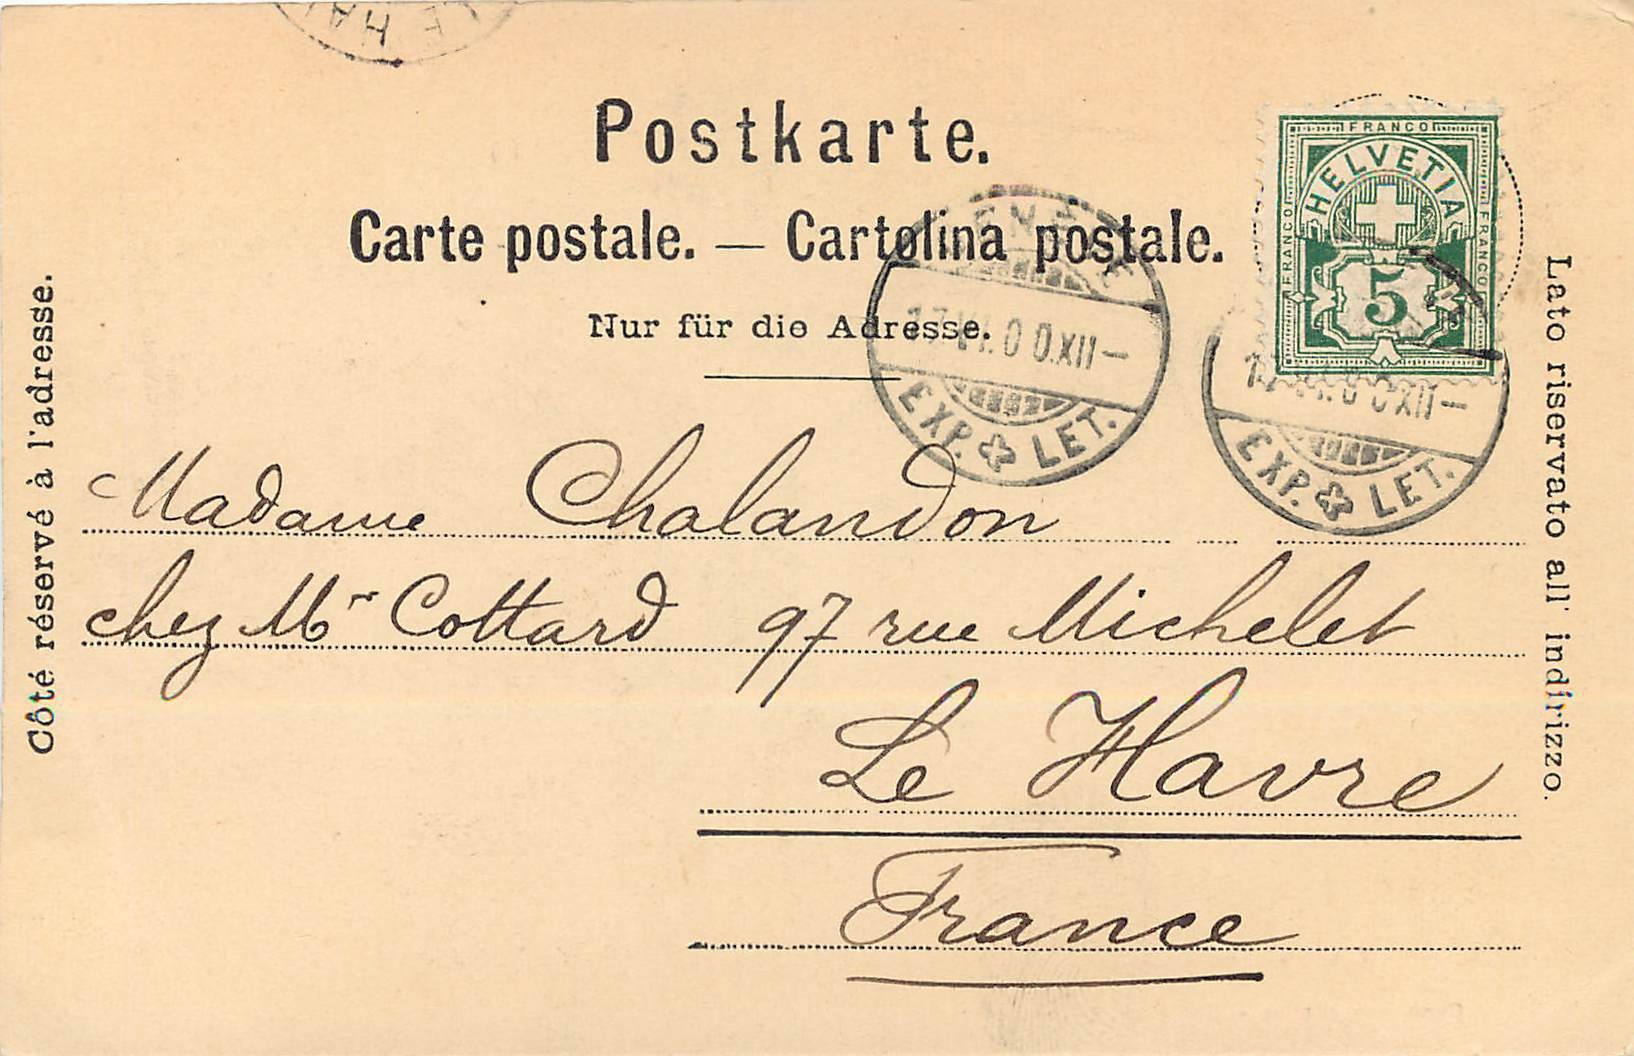 LE HA
Postkarte.
Carte postale. — Cartolina postale.
Nur für die Adresse.
Côté réservé à l'adresse.
Lato riservato all' indirizzo.
FRANCO
FRANCO
FRANCO
HELVETIA
5
0 0.XII—
EXP. LET.
0 0.XII—
EXP. LET.
Madame Chalandon
chez Mr Cottard 97 rue Michelet
Le Havre
France